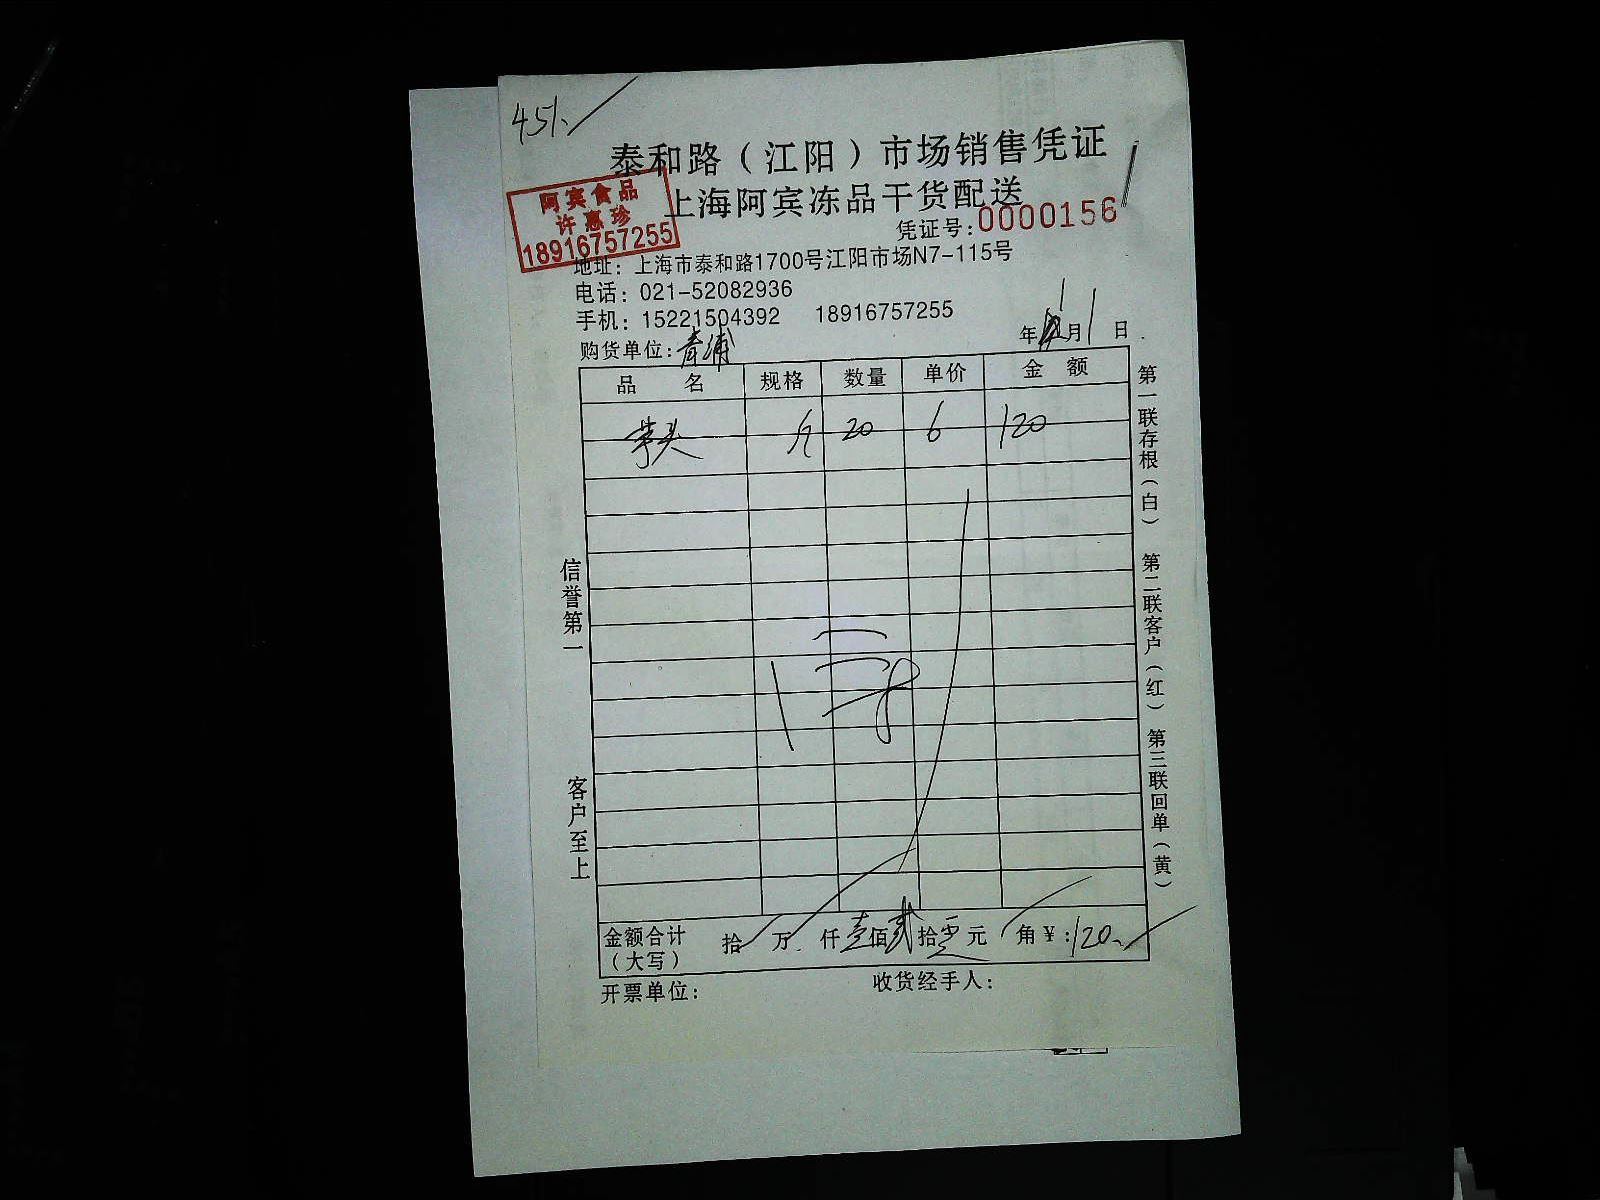 451.
泰和路（江阳）市场销售凭证
上海阿宾冻品干货配送
阿宾食品
许惠珍
18916757255
凭证号:0000156
地址：上海市泰和路1700号江阳市场N7-115号
电话：021-52082936
手机：15221504392 18916757255
年 月1日
购货单位:青浦
品 名 规格 数量 单价 金 额
芋头 斤 20 6 120
信誉第一
客户至上
第一联存根（白） 第二联客户（红） 第三联回单（黄）
金额合计（大写） 拾 万 仟壹佰贰拾零元 角￥:120.
开票单位: 收货经手人: